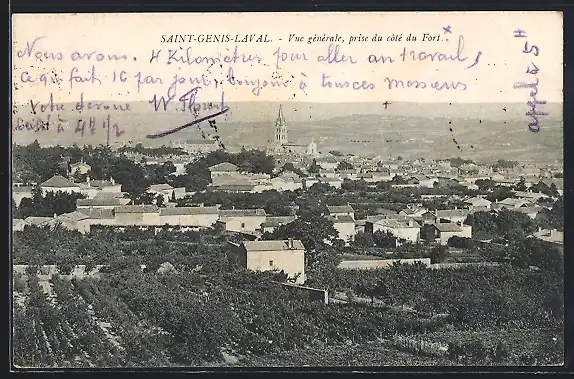 SAINT-GENIS-LAVAL. - Vue générale, prise du côté du Fort.
Nous avons 4 Kilomètres pour aller au travail,
a fait 16 par jour, bonjour à tousces messieurs
votre dévoué N Florent
à 4h 1/2
appel 5H